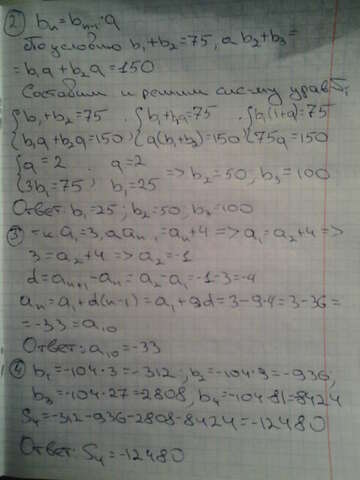 ② bₙ = bₙ₋₁·q
По условию b₁+b₂=75, а b₂+b₃=
= b₁q+b₂q=150
Составим и решим систему уравн.
{b₁+b₂=75 {b₁+b₂=75 {b₁(1+q)=75
{b₁q+b₂q=150 {q(b₁+b₂)=150 {75q=150
{q=2 q=2
{3b₁=75 b₁=25 => b₂=50; b₃=100
Ответ: b₁=25; b₂=50; b₃=100
a₁=3, а aₙ = aₙ₊₁+4 => a₁=a₂+4 =>
3=a₂+4 => a₂=-1
d=aₙ₊₁-aₙ=a₂-a₁=-1-3=-4
aₙ=a₁+d(n-1)=a₁+9d=3-9·4=3-36=
=-33=a₁₀
Ответ: a₁₀=-33
④ b₁=-104·3=-312; b₂=-104·9=-936,
b₃=-104·27=2808, b₄=-104·81=8424
S₄=-312-936-2808-8424=-12480
Ответ: S₄=-12480